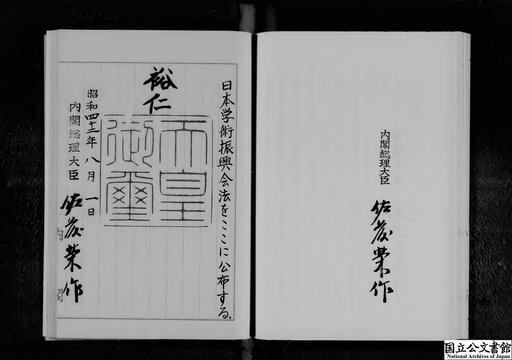 日本学術振興会法をここに公布する。
裕仁
天皇御璽
昭和四十二年八月一日
内閣総理大臣 佐藤榮作
内閣総理大臣 佐藤榮作
国立公文書館
National Archives of Japan